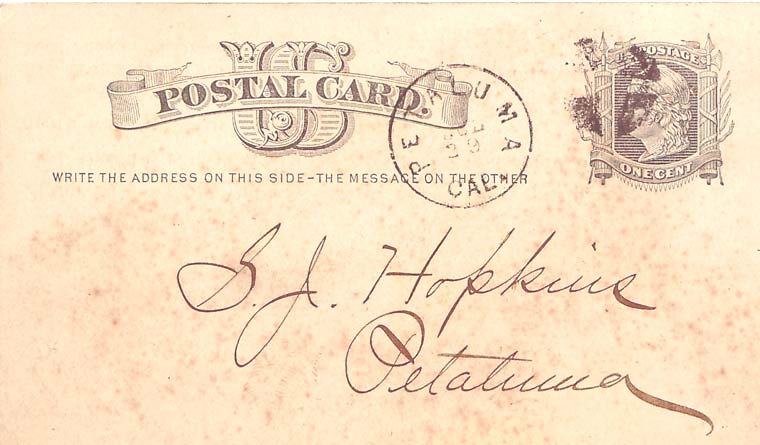 US
POSTAL CARD.
WRITE THE ADDRESS ON THIS SIDE–THE MESSAGE ON THE OTHER
PETALUMA
CAL.
U.S. POSTAGE
ONE CENT
S. J. Hopkins
Petaluma